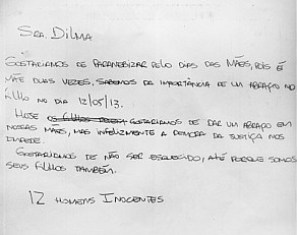 SRA. DILMA
GOSTARIAMOS DE PARABENIZAR PELO DIAS DAS MÃES, POIS É
MÃE DUAS VEZES, SABEMOS DA IMPORTÂNCIA DE UM ABRAÇO NO
FILHO NO DIA 12/05/13.
HOJE OS FILHOS GOSTARIAMOS DE DAR UM ABRAÇO EM
NOSSAS MÃES, MAS INFELIZMENTE A DEMORA DA JUSTIÇA NOS
IMPEDE.
GOSTARIAMOS DE NÃO SER ESQUECIDO, ATÉ PORQUE SOMOS
SEUS FILHOS TAMBÉM.
12 HOMENS INOCENTES